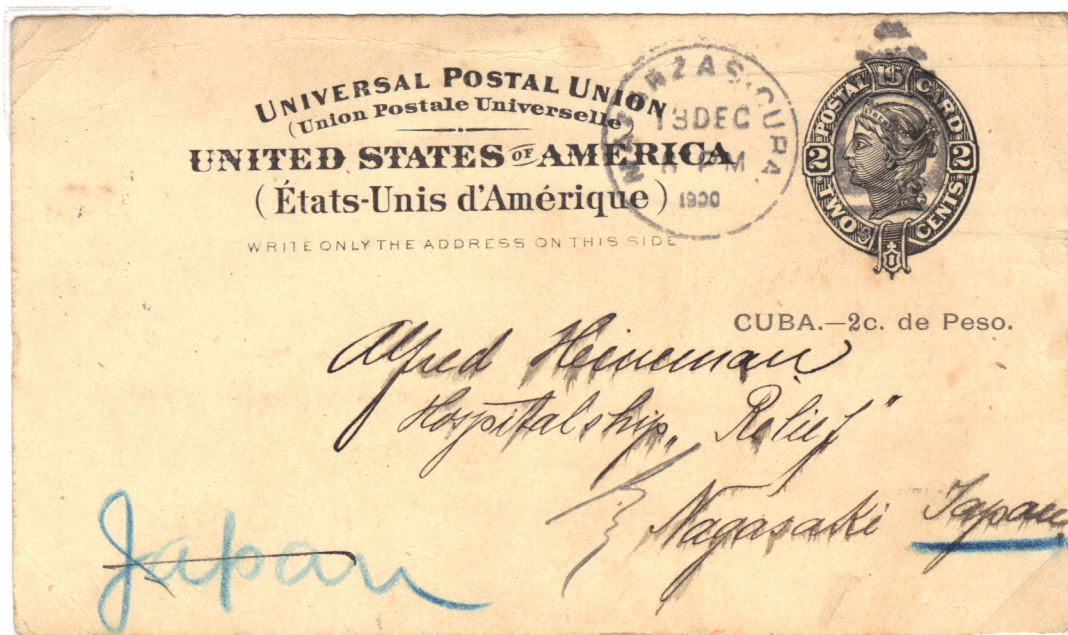 UNIVERSAL POSTAL UNION
(Union Postale Universelle)
UNITED STATES OF AMERICA
(États-Unis d'Amérique)
WRITE ONLY THE ADDRESS ON THIS SIDE
MATANZAS, CUBA.
13 DEC
6 PM
1900
POSTAL CARD
2 2
TWO CENTS
CUBA.—2c. de Peso.
Alfred Heineman
Hospitalship „Relief"
Nagasaki Japan
Japan